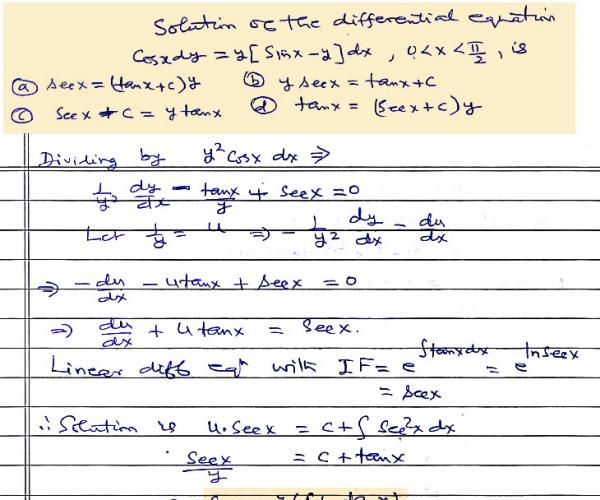 Solution of the differential equation
Cosx dy = y[Sinx - y]dx , 0 < x < π/2 , is
ⓐ secx = (tanx + c)y ⓑ y secx = tanx + c
ⓒ secx + c = y tanx ⓓ tanx = (secx + c)y
Dividing by y² Cosx dx ⇒
1/y² dy/dx - tanx/y + secx = 0
Let 1/y = u ⇒ - 1/y² dy/dx - du/dx
⇒ - du/dx - u tanx + secx = 0
⇒ du/dx + u tanx = secx.
Linear diff eqⁿ with IF = e^∫tanxdx = e^lnsecx
= secx
∴ Solution is u.secx = c + ∫ sec²x dx
secx/y = c + tanx